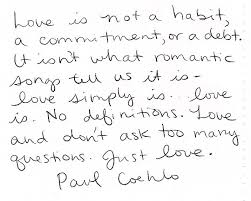 Love is not a habit,
a commitment, or a debt.
It isn't what romantic
songs tell us it is -
love simply is. love
is. No definitions. Love
and don't ask too many
questions. Just love.
Paul Coehlo